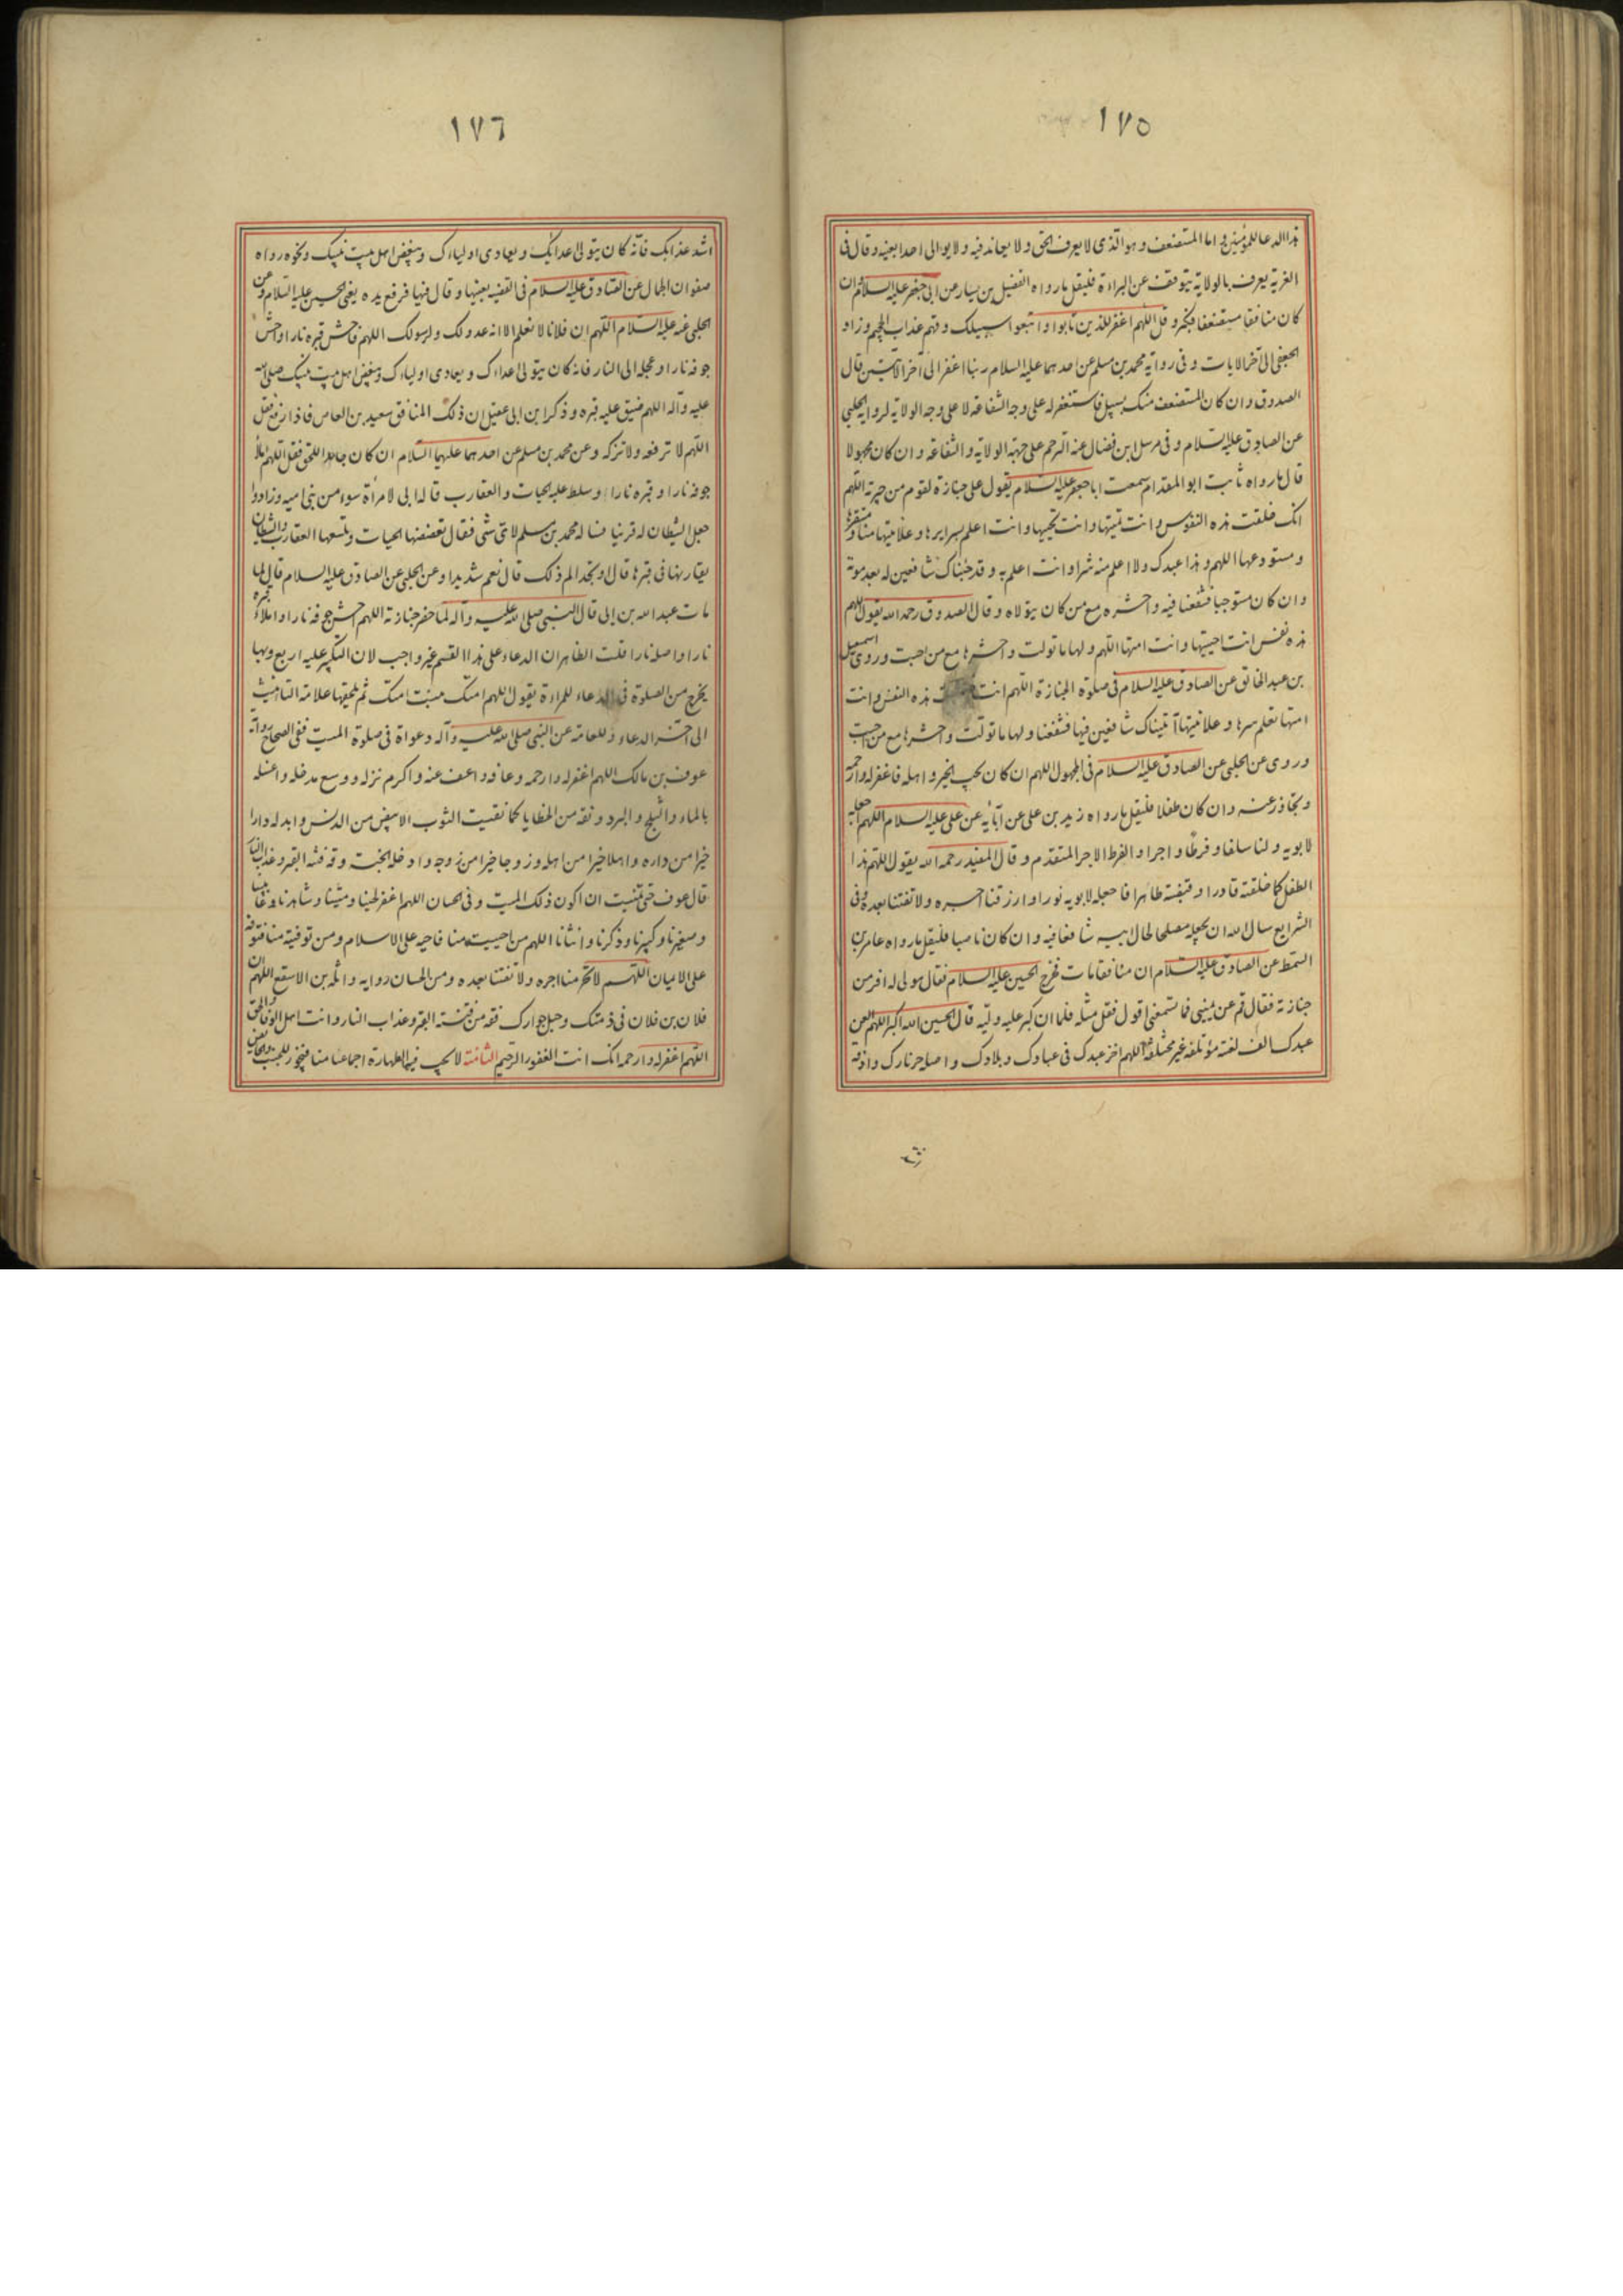 ١٧٥
هذا الدعا للمؤمنين و اما المستضعف و هو الذى لا يعرف الحق و لا يعاند فيه و لا يوالى احدا بعينه و قال فى
الغرية يعرف بالولاية و يتوقف عن البراءة فليقل ما رواه الفضيل بن يسار عن ابى جعفر عليه السلام ان
كان منافقا مستضعفا فكبر و قل اللهم اغفر للذين تابوا و اتبعوا سبيلك و قهم عذاب الجحيم و زاد
الجعفى الى آخر الايات و فى رواية محمد بن مسلم عن احدهما عليه السلام ربنا اغفر الى آخر الايتين قال
الصدوق و ان كان المستضعف منك بسبيل فاستغفر له على وجه الشفاعة لا على وجه الولاية لرواية الحلبى
عن الصادق عليه السلام و فى مرسل ابن فضال عنه الترحم على جهة الولاية و الشفاعة و ان كان مجهولا
قال ما رواه ثابت ابو المقدام سمعت ابا جعفر عليه السلام يقول على جنازة لقوم من جيرته اللهم
انك خلقت هذه النفوس و انت تميتها و انت تحييها و انت اعلم بسرايرها و علانيتها منا و مستقرها
و مستودعها اللهم و هذا عبدك و لا اعلم منه شرا و انت اعلم به و قد جئناك شافعين له بعد موته
و ان كان مستوجبا فشفعنا فيه و احشره مع من كان يتولاه و قال الصدوق رحمه الله يقول اللهم
هذه نفس انت احييتها و انت امتها اللهم ولها ما تولت و احشرها مع من احبت و روى اسمعيل
بن عبد الخالق عن الصادق عليه السلام فى صلوة الجنازة اللهم انت خلقت هذه النفس و انت
امتها تعلم سرها و علانيتها آتيناك شافعين فيها فشفعنا و لها ما تولت و احشرها مع من احبت
و روى عن الحلبى عن الصادق عليه السلام فى المجهول اللهم ان كان يحب الخير و اهله فاغفر له و ارحمه
و تجاوز عنه و ان كان طفلا فليقل ما رواه زيد بن على عن آبائه عن على عليه السلام اللهم اجعله
لابويه و لنا سلفا و فرطا و اجرا و الفرط الاجر المتقدم و قال المفيد رحمه الله يقول اللهم هذا
الطفل كما خلقته قادرا و قبضته طاهرا فاجعله لابويه نورا و ارزقنا اجره و لا تفتنا بعده و فى
الشرايع سال الله ان يجعله مصلحا لحال ابيه شافعا فيه و ان كان ناصبا فليقل ما رواه عامر بن
السمط عن الصادق عليه السلام ان منافقا مات فخرج الحسين عليه السلام فقال مولى له افر من
جنازته فقال قم عن يمينى فما تسمعنى اقول فقل مثله فلما ان كبر عليه وليه قال الحسين الله اكبر اللهم العن
عبدك الف لعنة مؤتلفة غير مختلفة اللهم اخز عبدك فى عبادك و بلادك و اصله حر نارك و اذقه
١٧٦
اشد عذابك فانه كان يتولى اعدائك و يعادى اولياءك و يبغض اهل بيت نبيك و نحوه رواه
صفوان الجمال عن الصادق عليه السلام فى القضية بعينها و قال فيها فرفع يده يعنى الحسين عليه السلام و عن
الحلبى عنه عليه السلام اللهم ان فلانا لا نعلم الا انه عدو لك و لرسولك اللهم فاحش قبره نارا و احش
جوفه نارا و عجله الى النار فانه كان يتولى اعداءك و يعادى اولياءك و يبغض اهل بيت نبيك صلى الله
عليه و آله اللهم ضيق عليه قبره و ذكر ابن ابى عقيل ان ذلك المنافق سعيد بن العاص فاذا رفع فقل
اللهم لا ترفعه و لا تزكه و عن محمد بن مسلم عن احدهما عليهما السلام ان كان جاحدا للحق فقل اللهم املأ
جوفه نارا و قبره نارا و سلط عليه الحيات و العقارب قاله ابى لامرأة سوء من بنى اميه و زاد و
جعل الشيطان له قرينا فساله محمد بن مسلم لاى شئ فقال تعضضها الحيات و تلسعها العقارب و الشيطان
يقارنها فى قبرها قال او تجد الم ذلك قال نعم شديدا و عن الحلبى عن الصادق عليه السلام قال لما
مات عبد الله بن ابى قال النبى صلى الله عليه و آله لما حضر جنازته اللهم احش جوفه نارا و املاء قبره
نارا و اصله نارا قلت الظاهر ان الدعاء على هذا القسم غير واجب لان التكبير عليه اربع و بها
يخرج من الصلوة فى الدعاء للمراءة يقول اللهم امتك بنت امتك ثم يلحقها علامة التانيث
الى آخر الدعاء و للعامة عن النبى صلى الله عليه و آله دعوات فى صلوة الميت ففى الصحاح رواية
عوف بن مالك اللهم اغفر له و ارحمه و عافه و اعف عنه و اكرم نزله و وسع مدخله و اغسله
بالماء و الثلج و البرد و نقه من الخطايا كما نقيت الثوب الابيض من الدنس و ابدله دارا
خيرا من داره و اهلا خيرا من اهله و زوجا خيرا من زوجه و ادخله الجنة و قه فتنة القبر و عذاب النار
قال عوف حتى تمنيت ان اكون ذلك الميت و فى الحسان اللهم اغفر لحينا و ميتنا و شاهدنا و غائبنا
و صغيرنا و كبيرنا و ذكرنا و انثانا اللهم من احييته منا فاحيه على الاسلام و من توفيته منا فتوفه
على الايمان اللهم لا تحرمنا اجره و لا تفتنا بعده و من الحسان رواية واثلة بن الاسقع اللهم ان
فلان بن فلان فى ذمتك و حبل جوارك فقه من فتنة القبر و عذاب النار و انت اهل الوفا و الحق
اللهم اغفر له و ارحمه انك انت الغفور الرحيم الثامنة لا يجب فيها الطهارة اجماعا منا فيجوز للجنب و الحائض